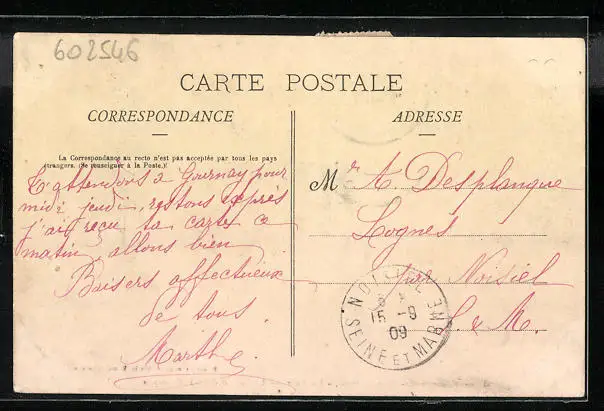 602546
CARTE POSTALE
CORRESPONDANCE
ADRESSE
La Correspondance au recto n'est pas acceptée par tous les pays
étrangers. (Se renseigner à la Poste.)
T'attendons à Gournay pour
midi jeudi, restons exprès
j'ai reçu ta carte ce
matin, allons bien
Baisers affectueux
de tous.
Marthe
Mr A Desplanque
Lognes
par Noisiel
S & M.
NOISIEL
15 - 9
09
SEINE ET MARNE